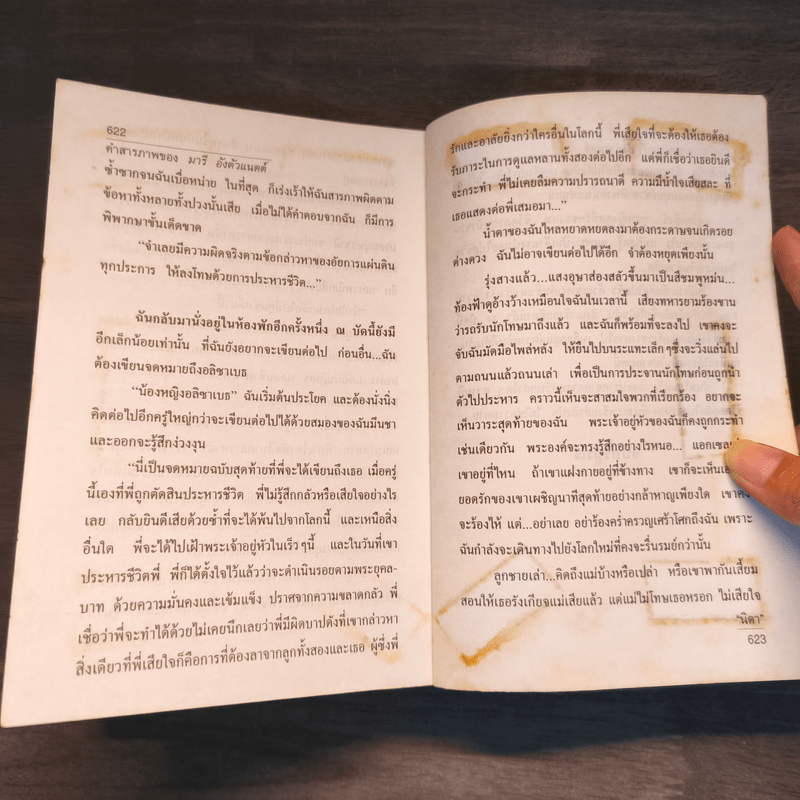 622
คำสารภาพของ มารี อังตัวแนตต์
ซ้ำซากจนฉันเบื่อหน่าย ในที่สุด ก็เร่งเร้าให้ฉันสารภาพผิดตาม
ข้อหาทั้งหลายทั้งปวงนั้นเสีย เมื่อไม่ได้คำตอบจากฉัน ก็มีการ
พิพากษาขั้นเด็ดขาด
“จำเลยมีความผิดจริงตามข้อกล่าวหาของอัยการแผ่นดิน
ทุกประการ ให้ลงโทษด้วยการประหารชีวิต...”
ฉันกลับมานั่งอยู่ในห้องพักอีกครั้งหนึ่ง ณ บัดนี้ยังมี
อีกเล็กน้อยเท่านั้น ที่ฉันยังอยากจะเขียนต่อไป ก่อนอื่น...ฉัน
ต้องเขียนจดหมายถึงอลิซาเบธ
“น้องหญิงอลิซาเบธ” ฉันเริ่มต้นประโยค และต้องนั่งนิ่ง
คิดต่อไปอีกครู่ใหญ่กว่าจะเขียนต่อไปได้ด้วยสมองของฉันมึนชา
และออกจะรู้สึกง่วงงุน
“นี่เป็นจดหมายฉบับสุดท้ายที่พี่จะได้เขียนถึงเธอ เมื่อครู่
นี้เองที่พี่ถูกตัดสินประหารชีวิต พี่ไม่รู้สึกกลัวหรือเสียใจอย่างไร
เลย กลับยินดีเสียด้วยซ้ำที่จะได้พ้นไปจากโลกนี้ และเหนือสิ่ง
อื่นใด พี่จะได้ไปเฝ้าพระเจ้าอยู่หัวในเร็วๆนี้ และในวันที่เขา
ประหารชีวิตพี่ พี่ก็ได้ตั้งใจไว้แล้วว่าจะดำเนินรอยตามพระยุคล-
บาท ด้วยความมั่นคงและเข้มแข็ง ปราศจากความขลาดกลัว พี่
เชื่อว่าพี่จะทำได้ด้วยไม่เคยนึกเลยว่าพี่มีผิดบาปดังที่เขากล่าวหา
สิ่งเดียวที่พี่เสียใจก็คือการที่ต้องลาจากลูกทั้งสองและเธอ ผู้ซึ่งพี่
รักและอาลัยยิ่งกว่าใครอื่นในโลกนี้ พี่เสียใจที่จะต้องให้เธอต้อง
รับภาระในการดูแลหลานทั้งสองต่อไปอีก แต่พี่ก็เชื่อว่าเธอยินดี
จะกระทำ พี่ไม่เคยลืมความปรารถนาดี ความมีน้ำใจเสียสละ ที่
เธอแสดงต่อพี่เสมอมา...”
น้ำตาของฉันไหลหยาดหยดลงมาต้องกระดาษจนเกิดรอย
ด่างดวง ฉันไม่อาจเขียนต่อไปได้อีก จำต้องหยุดเพียงนั้น
รุ่งสางแล้ว...แสงอุษาส่องสลัวขึ้นมาเป็นสีชมพูหม่น...
ท้องฟ้าดูอ้างว้างเหมือนใจฉันในเวลานี้ เสียงทหารยามร้องขาน
ว่ารถรับนักโทษมาถึงแล้ว และฉันก็พร้อมที่จะลงไป เขาคงจะ
จับฉันมัดมือไพล่หลัง ให้ยืนไปบนระแทะเล็กๆซึ่งจะวิ่งแล่นไป
ตามถนนแล้วถนนเล่า เพื่อเป็นการประจานนักโทษก่อนถูกนำ
ตัวไปประหาร คราวนี้เห็นจะสาสมใจพวกที่เรียกร้อง อยากจะ
เห็นวาระสุดท้ายของฉัน พระเจ้าอยู่หัวของฉันก็คงถูกกระทำ
เช่นเดียวกัน พระองค์จะทรงรู้สึกอย่างไรหนอ... แอกเซล
เขาอยู่ที่ไหน ถ้าเขาแฝงกายอยู่ที่ข้างทาง เขาก็จะเห็น
ยอดรักของเขาเผชิญนาทีสุดท้ายอย่างกล้าหาญเพียงใด เขาคง
จะร้องไห้ แต่...อย่าเลย อย่าร้องคร่ำครวญเศร้าโศกถึงฉัน เพราะ
ฉันกำลังจะเดินทางไปยังโลกใหม่ที่คงจะรื่นรมย์กว่านั้น
ลูกชายเล่า...คิดถึงแม่บ้างหรือเปล่า หรือเขาพากันเสี้ยม
สอนให้เธอรังเกียจแม่เสียแล้ว แต่แม่ไม่โทษเธอหรอก ไม่เสียใจ
“นิดา”
623